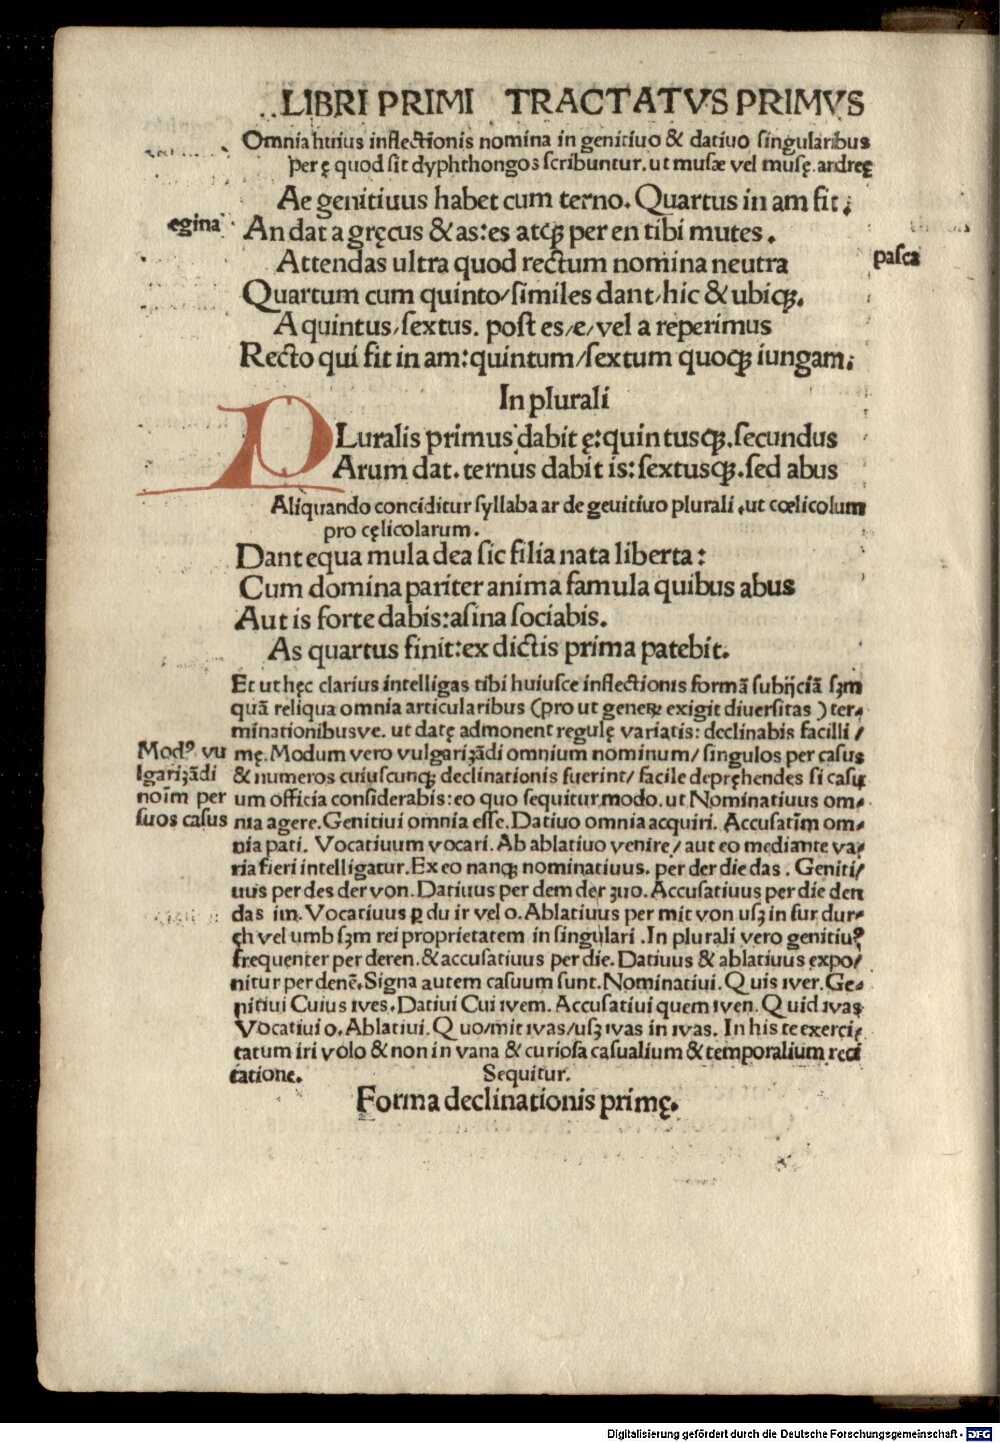 LIBRI PRIMI TRACTATVS PRIMVS
Omnia huius inflectionis nomina in genitiuo & datiuo singularibus
per ę quod sit dyphthongos scribuntur. ut musæ vel musę. andreę
Ae genitiuus habet cum terno. Quartus in am fit.
egina
An dat a gręcus & as: es atqꝫ per en tibi mutes.
Attendas ultra quod rectum nomina neutra
pasca
Quartum cum quinto/similes dant/hic & ubiqꝫ.
A quintus/sextus. post es/e/vel a reperimus
Recto qui fit in am: quintum/sextum quoqꝫ iungam.
In plurali
PLuralis primus dabit ę: quintusqꝫ. secundus
Arum dat. ternus dabit is: sextusqꝫ. sed abus
Aliquando conciditur syllaba ar de geuitiuo plurali. ut cœlicolum
pro cęlicolarum.
Dant equa mula dea sic filia nata liberta:
Cum domina pariter anima famula quibus abus
Aut is forte dabis: asina sociabis.
As quartus finit: ex dictis prima patebit.
Et ut hęc clarius intelligas tibi huiusce inflectionis formā subijciā sꝫm
quā reliqua omnia articularibus (pro ut generꝫ exigit diuersitas) ter-
minationibusve. ut datę admonent regulę variatis: declinabis facilli/
Modꝰ. vu
lgariꝫādi
noīm per
suos casus
mę. Modum vero vulgariꝫādi omnium nominum/singulos per casus
& numeros cuiuscunqꝫ declinationis fuerint/facile depręhendes si casu
um officia considerabis: eo quo sequitur modo. ut Nominatiuus om-
nia agere. Genitiui omnia esse. Datiuo omnia acquiri. Accusatiīm om-
nia pati. Vocatiuum vocari. Ab ablatiuo venire/aut eo mediante va-
ria fieri intelligatur. Ex eo nanqꝫ nominatiuus. per der die das. Geniti/
uus per des der von. Datiuus per dem der ꝫuo. Accusatiuus per die den
das im. Vocatiuus ꝑ du ir vel o. Ablatiuus per mit von usꝫ in fur dur-
ch vel umb sꝫm rei proprietatem in singulari. In plurali vero genitiuꝰ
frequenter per deren. & accusatiuus per die. Datiuus & ablatiuus expo/
nitur per denē. Signa autem casuum sunt. Nominatiui. Quis iver. Ge-
nitiui Cuius ives. Datiui Cui ivem. Accusatiui quem iven. Quid ivas
Vocatiui o. Ablatiui. Quo/mit ivas/usꝫ ivas in ivas. In his te exerci-
tatum iri volo & non in vana & curiosa casualium & temporalium reci
tatione. Sequitur.
Forma declinationis primę.
Digitalisierung gefördert durch die Deutsche Forschungsgemeinschaft - DFG